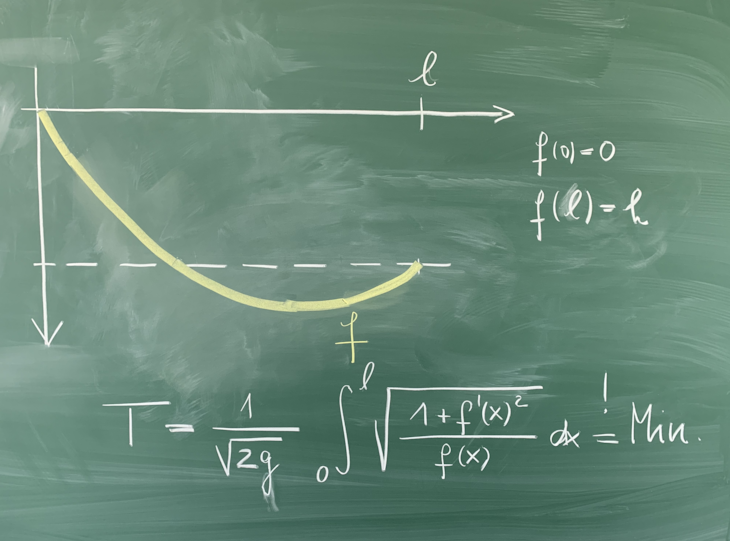 l
f(0)=0
f(l)=h
f
T = 1/√2g ∫₀ˡ √(1+f'(x)²/f(x)) dx =! Min.